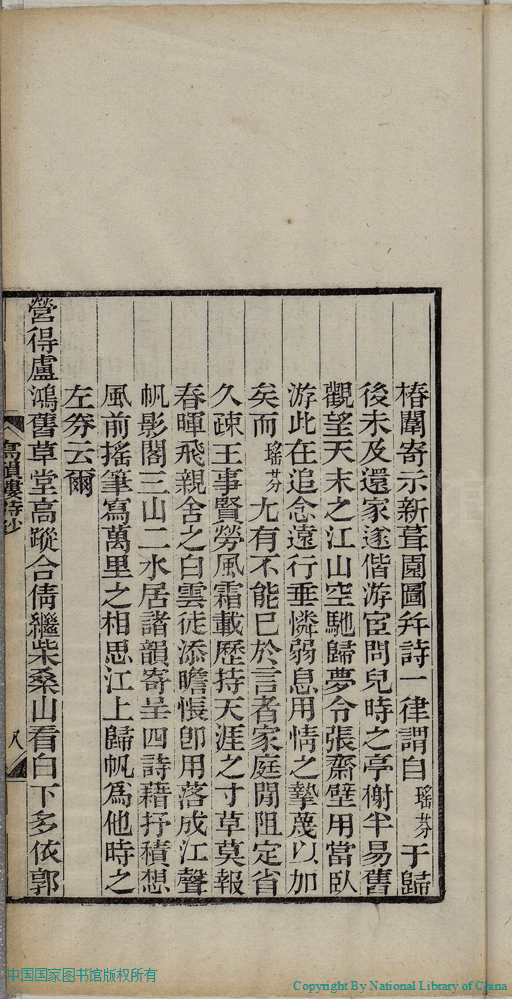 椿闈寄示新葺園圖幷詩一律謂自瑤芬于歸
後未及還家遂偕游宦問兒時之亭榭半易舊
觀望天末之江山空馳歸夢令張齋壁用當臥
游此在追念遠行垂憐弱息用情之摯蔑以加
矣而瑤芬尤有不能已於言者家庭閒阻定省
久疎王事賢勞風霜載歷持天涯之寸草莫報
春暉飛親舍之白雲徒添瞻悵卽用落成江聲
帆影閣三山二水居諸韻寄呈四詩藉抒積想
風前搖筆寫萬里之相思江上歸帆爲他時之
左劵云爾
營得盧鴻舊草堂高蹤合倩繼柴桑山看白下多依郭
韻樓詩鈔
八
中国国家图书馆版权所有
Copyright By National Library of China